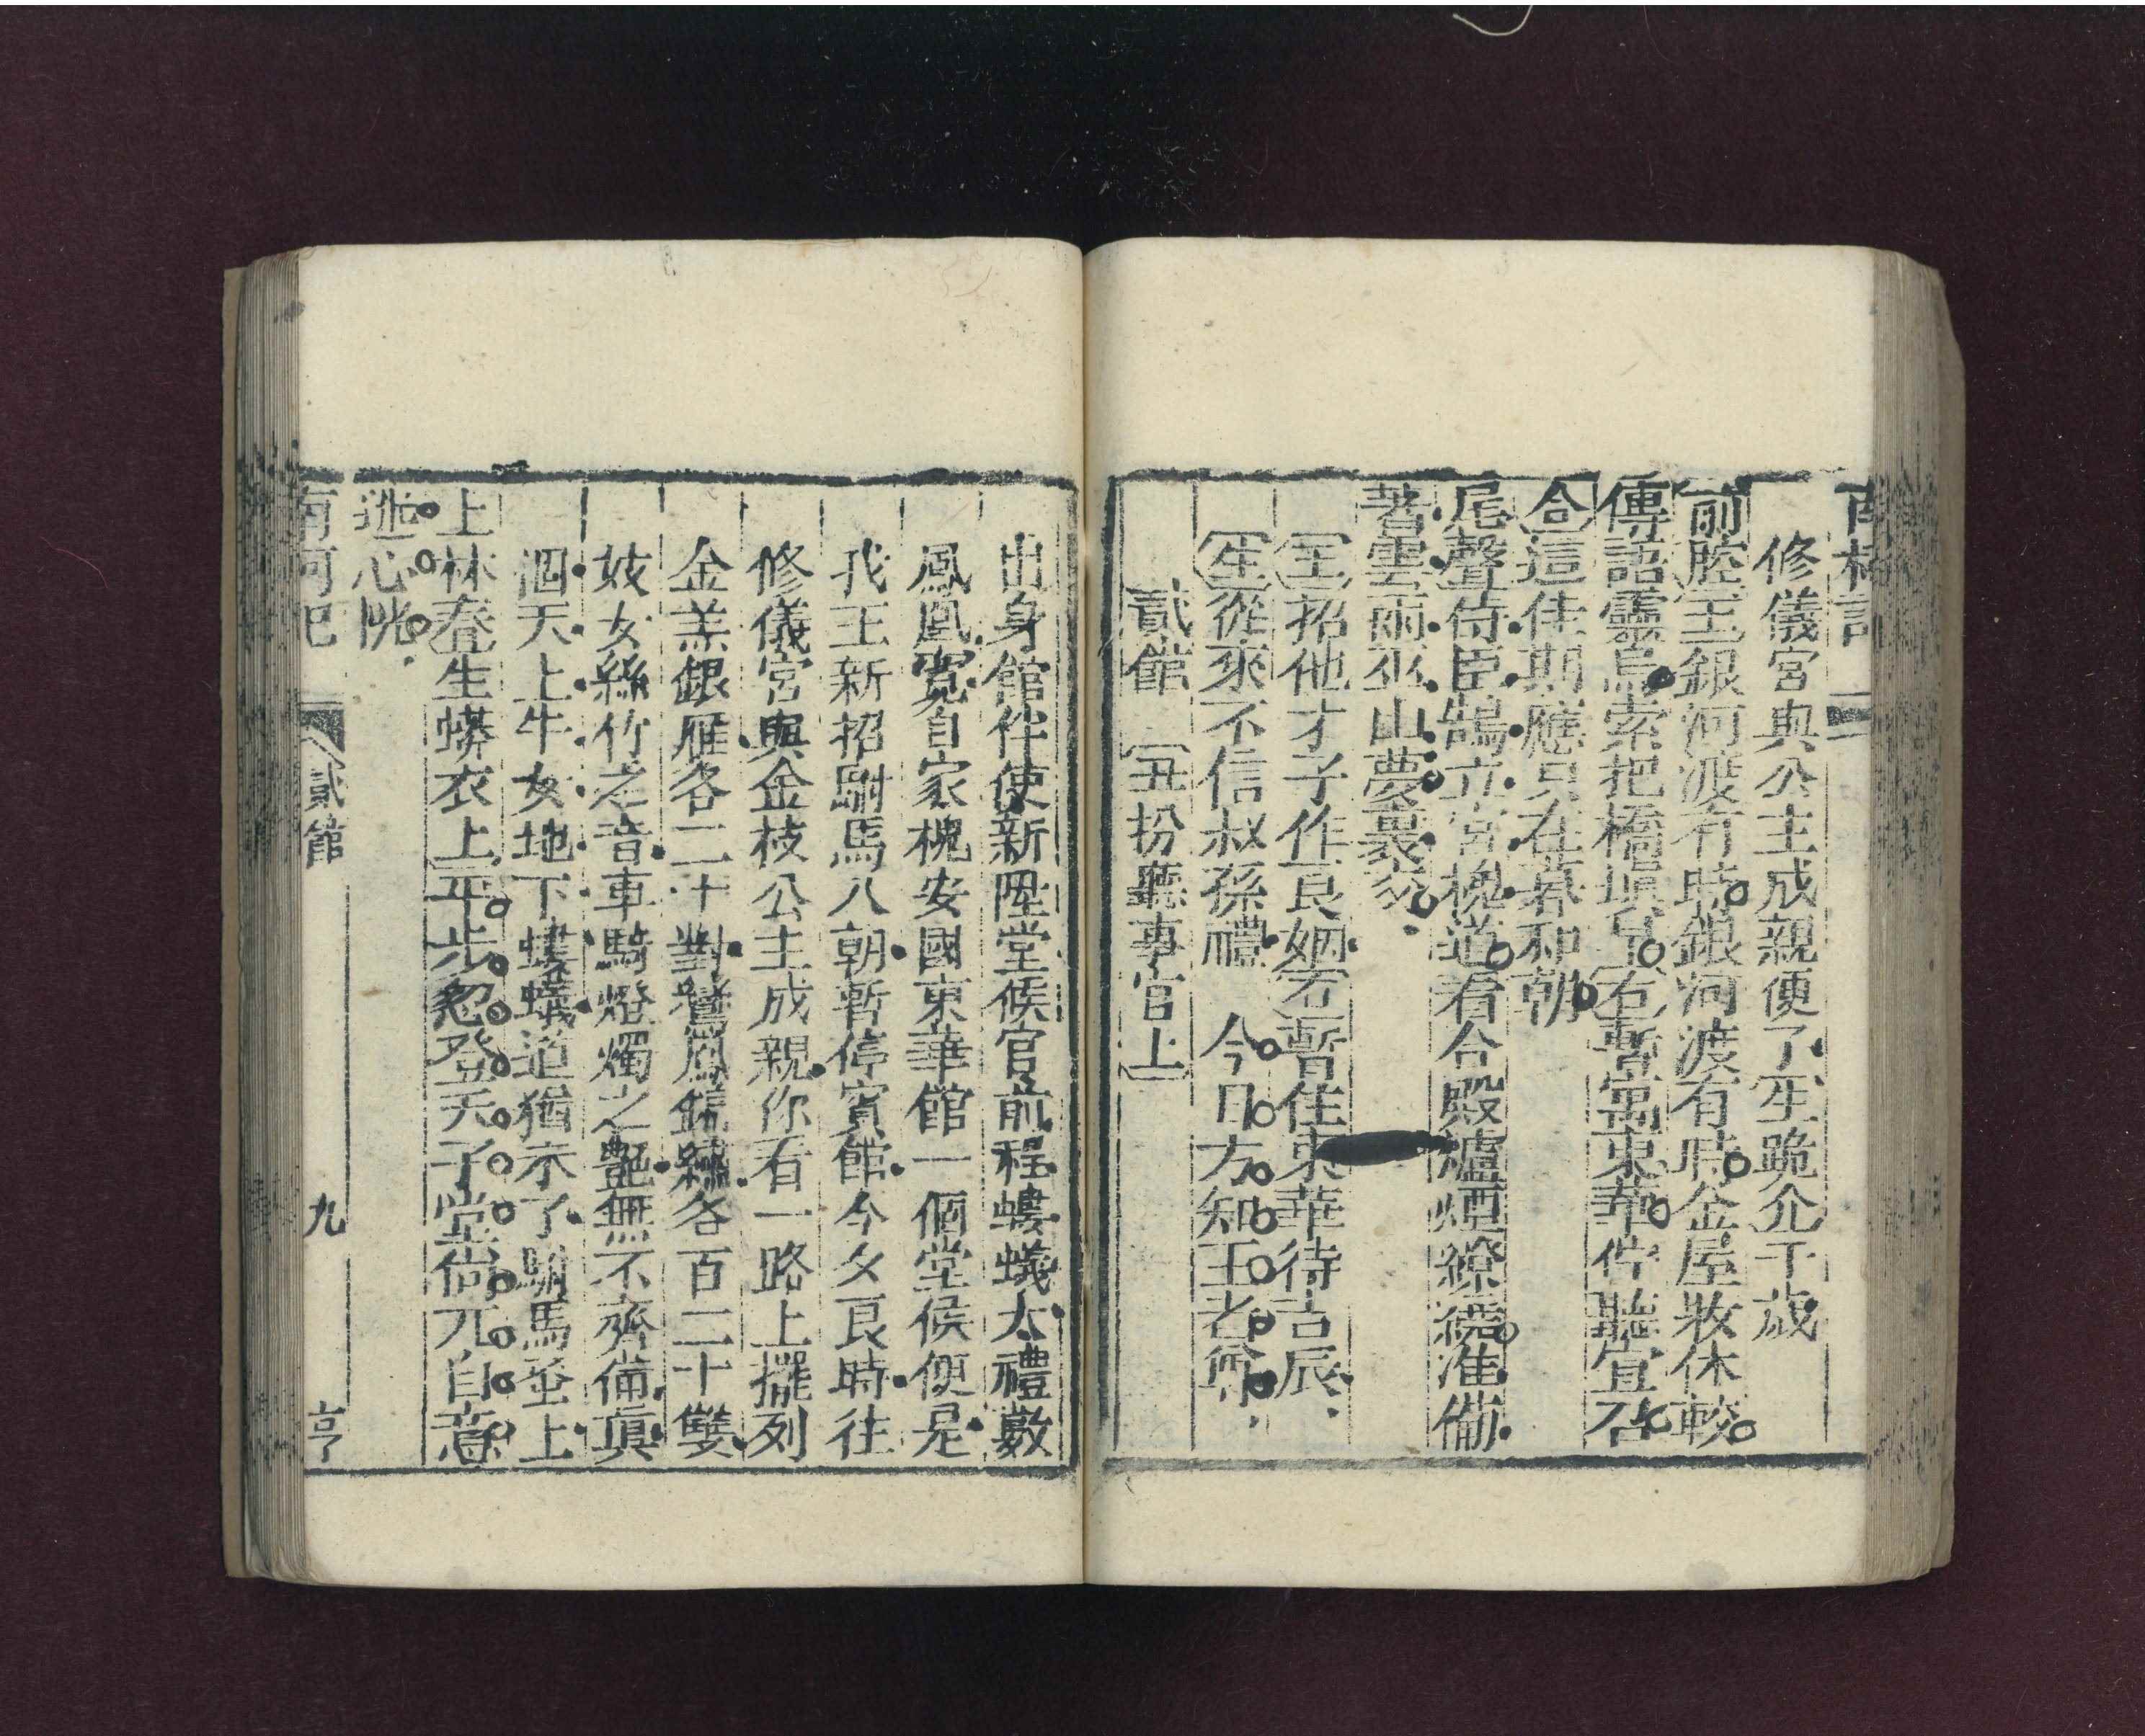 南柯記
修儀宮與公主成親便了生跪介千歲
前腔王銀河渡有時銀河渡有時金屋妝休較
傳語靈烏索把橋塡早右暫寓東華佇聽宣召
合這佳期應只在暮和朝
尾聲侍臣鵠立宮槐道看合殿爐煙繚繞准備
著雲雨巫山夢裏
王招他才子作良姻右暫住東華待吉辰
生從來不信叔孫禮　今日方知王者
貳館　丑扮聽事官上
出身館伴使新陞堂候官前程螻蟻大禮數
鳳凰寬自家槐安國東華館一個堂候便是
我王新招駙馬入朝暫停賓館今夕良時往
修儀宮與金枝公主成親你看一路上擺列
金羔銀雁各二十對鸞鳳錦繡各百二十雙
妓女絲竹之音車騎燈燭之艶無不齊備眞
個天上牛女地下螻蟻道猶未了駙馬蚤上
上林春生蟒衣上平步忽登天子堂尙兀自意
迤心恍
南柯記　貳館　九　亨